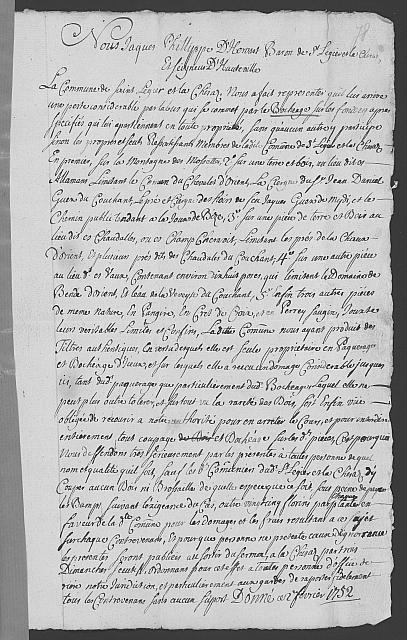 78
Nous Jaques Philippe D'Honnet Baron de St Legier et la Chiesa
Et Seigneur D'Hauteville
La Commune de Saint Legier et la Chiesaz, Nous a fait representer qu'il luy arrive
une perte considerable par l'abus qui se commet par le Bochéage sur les fonds cy apres
specifiés qui luy apartiennent en toute proprieté, sans qu'aucun autre y participe
sinon les propres et seuls Membres de la dite Comune de St Legier et la Chiesaz
En premier, sur la Montagne des 2° sur une terre et bois, au lieu dit es
Allamans Limitant le Chemin d'Orient, La du Sr Jean Daniel
du Couchant, et les hoirs de feu Jaques de Midy, et le
Chemin public tendant a la de Bize, 3° sur une piece de terre et Bois au
lieu dit es Chaudalles, ou es Champ Limitant les prés de la
D'orient, et plusieurs prés des Chaudalles du Couchant, 4° sur une autre piece
au lieu d. es Vaux, Contenant environ dixhuit poses, qui limitent le Domaine de
d'orient, et l'eau de la Veveyse du Couchant, 5° Enfin trois autres pieces
de meme nature, en , en Crêt de , et en Perrey , Jouxte
leur veritables Limites et Confins, La ditte Comune nous ayant produit des
Tiltres authentiques, En vertu desquels elle est seule propriétaire en Paquerage
et Bochéage d'Iceux, et sur lesquels elle a reçu un domage Considerable jusques
icy, tant du d. paquerage que particulierement du d. Bochéage, Lequel elle ne
peut plus outre tolerer, et sur tout vu la rareté des Bois, soit Enfin vire
obligée de recourir a notre authorité pour en arreter le Cours, et pour interdire
entierement tout coupage et Bochéage sur les dtes pieces, C'est pourquoy
Nous defendons tres serieusement par les presentes a toutes personnes de quel
nom et qualité qu'il soit sauf les dts Comuniers du d. St Legier et la Chiesaz, de
Couper aucun Bois ni Brosailles de quelles especes que ce soit sous peine de payer
les Bamps suivant l'exigeance du Cas, outre vingt cinq florins par plante en
Chesne
faveur de la dte Comune pour les domages et les frais resultant a ce sujet
sur chaque Controvenant, Et pour que personne n'en pretexte cause d'ignorance
les presentes seront publiées au sortir du sermon, a la Chiesaz par trois
Dimanches , ordonnans pour cet effet a toutes personnes d'office de
riere notre Jurisdiction, et particulierement aux gardes de raporter fidelement
tous les Controvenans sans aucun suport Donné ce 2e fevrier 1752